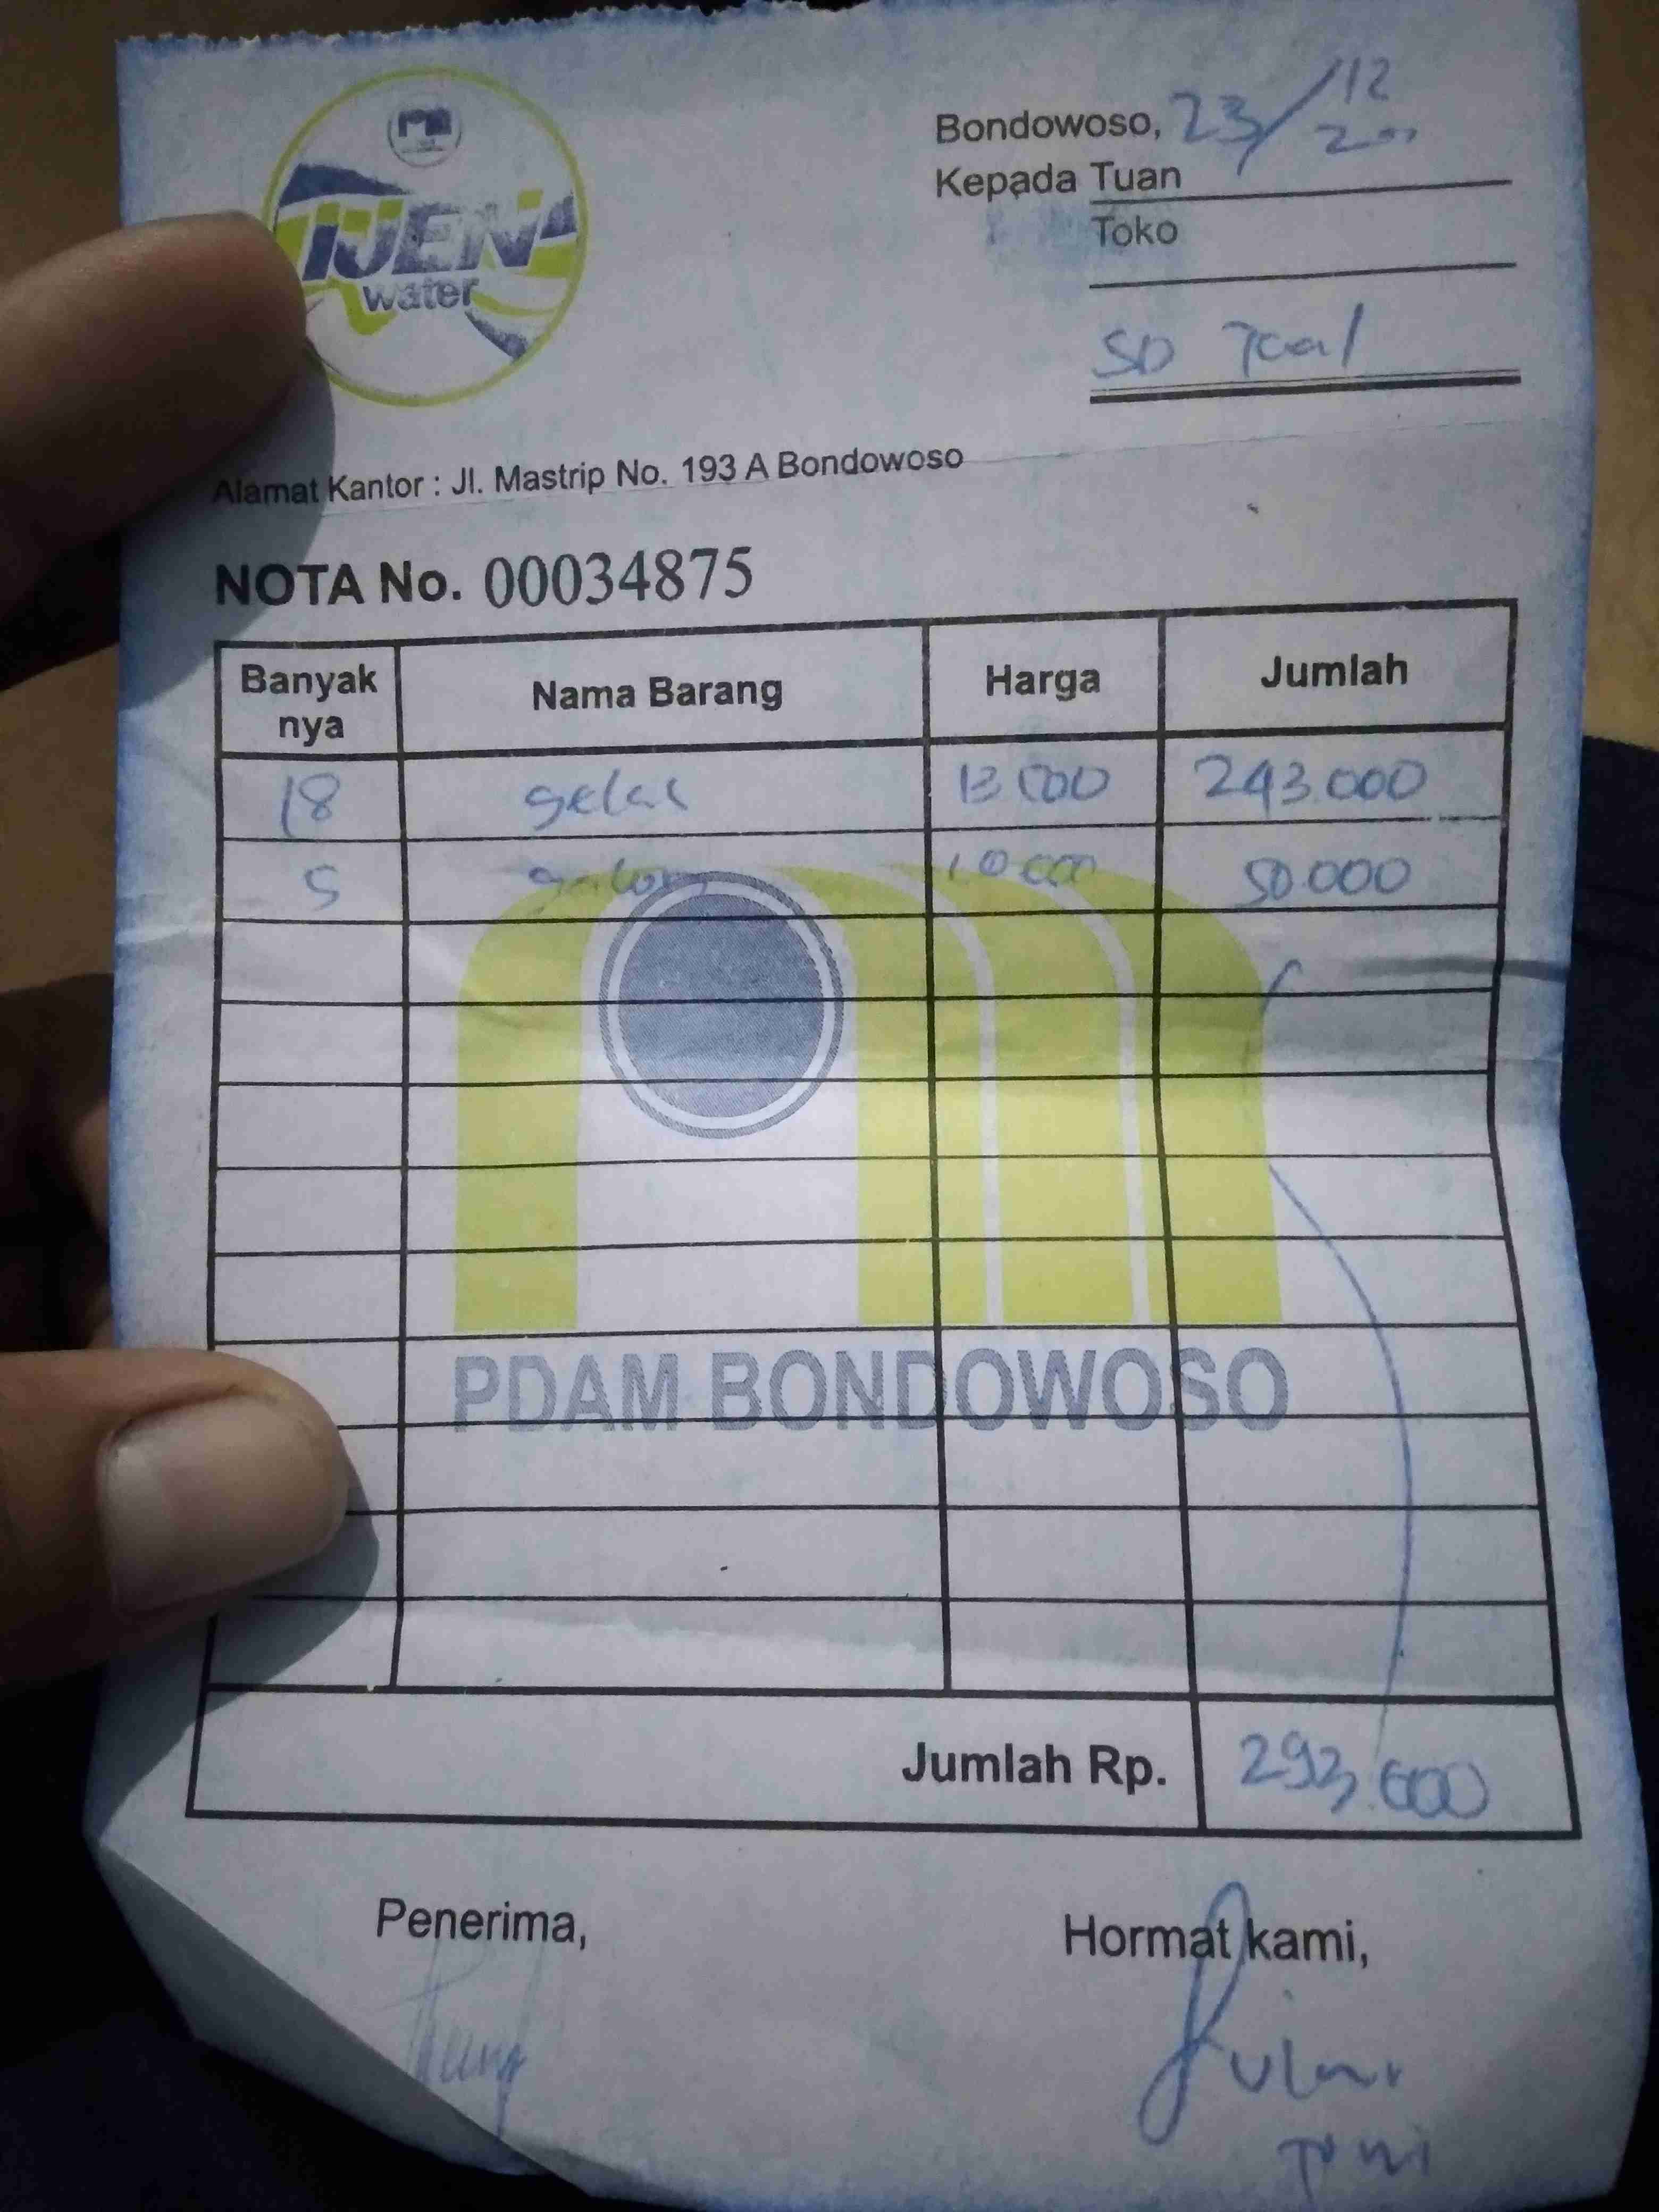 IJEN
water
Bondowoso, 23/12
Kepada Tuan
Toko
SD
Alamat Kantor : Jl. Mastrip No. 193 A Bondowoso
NOTA No. 00034875
Banyak nya Nama Barang Harga Jumlah
18 gelas 243.000
5 galon 10.000 50.000
PDAM BONDOWOSO
Jumlah Rp. 293.000
Penerima, Hormat kami,